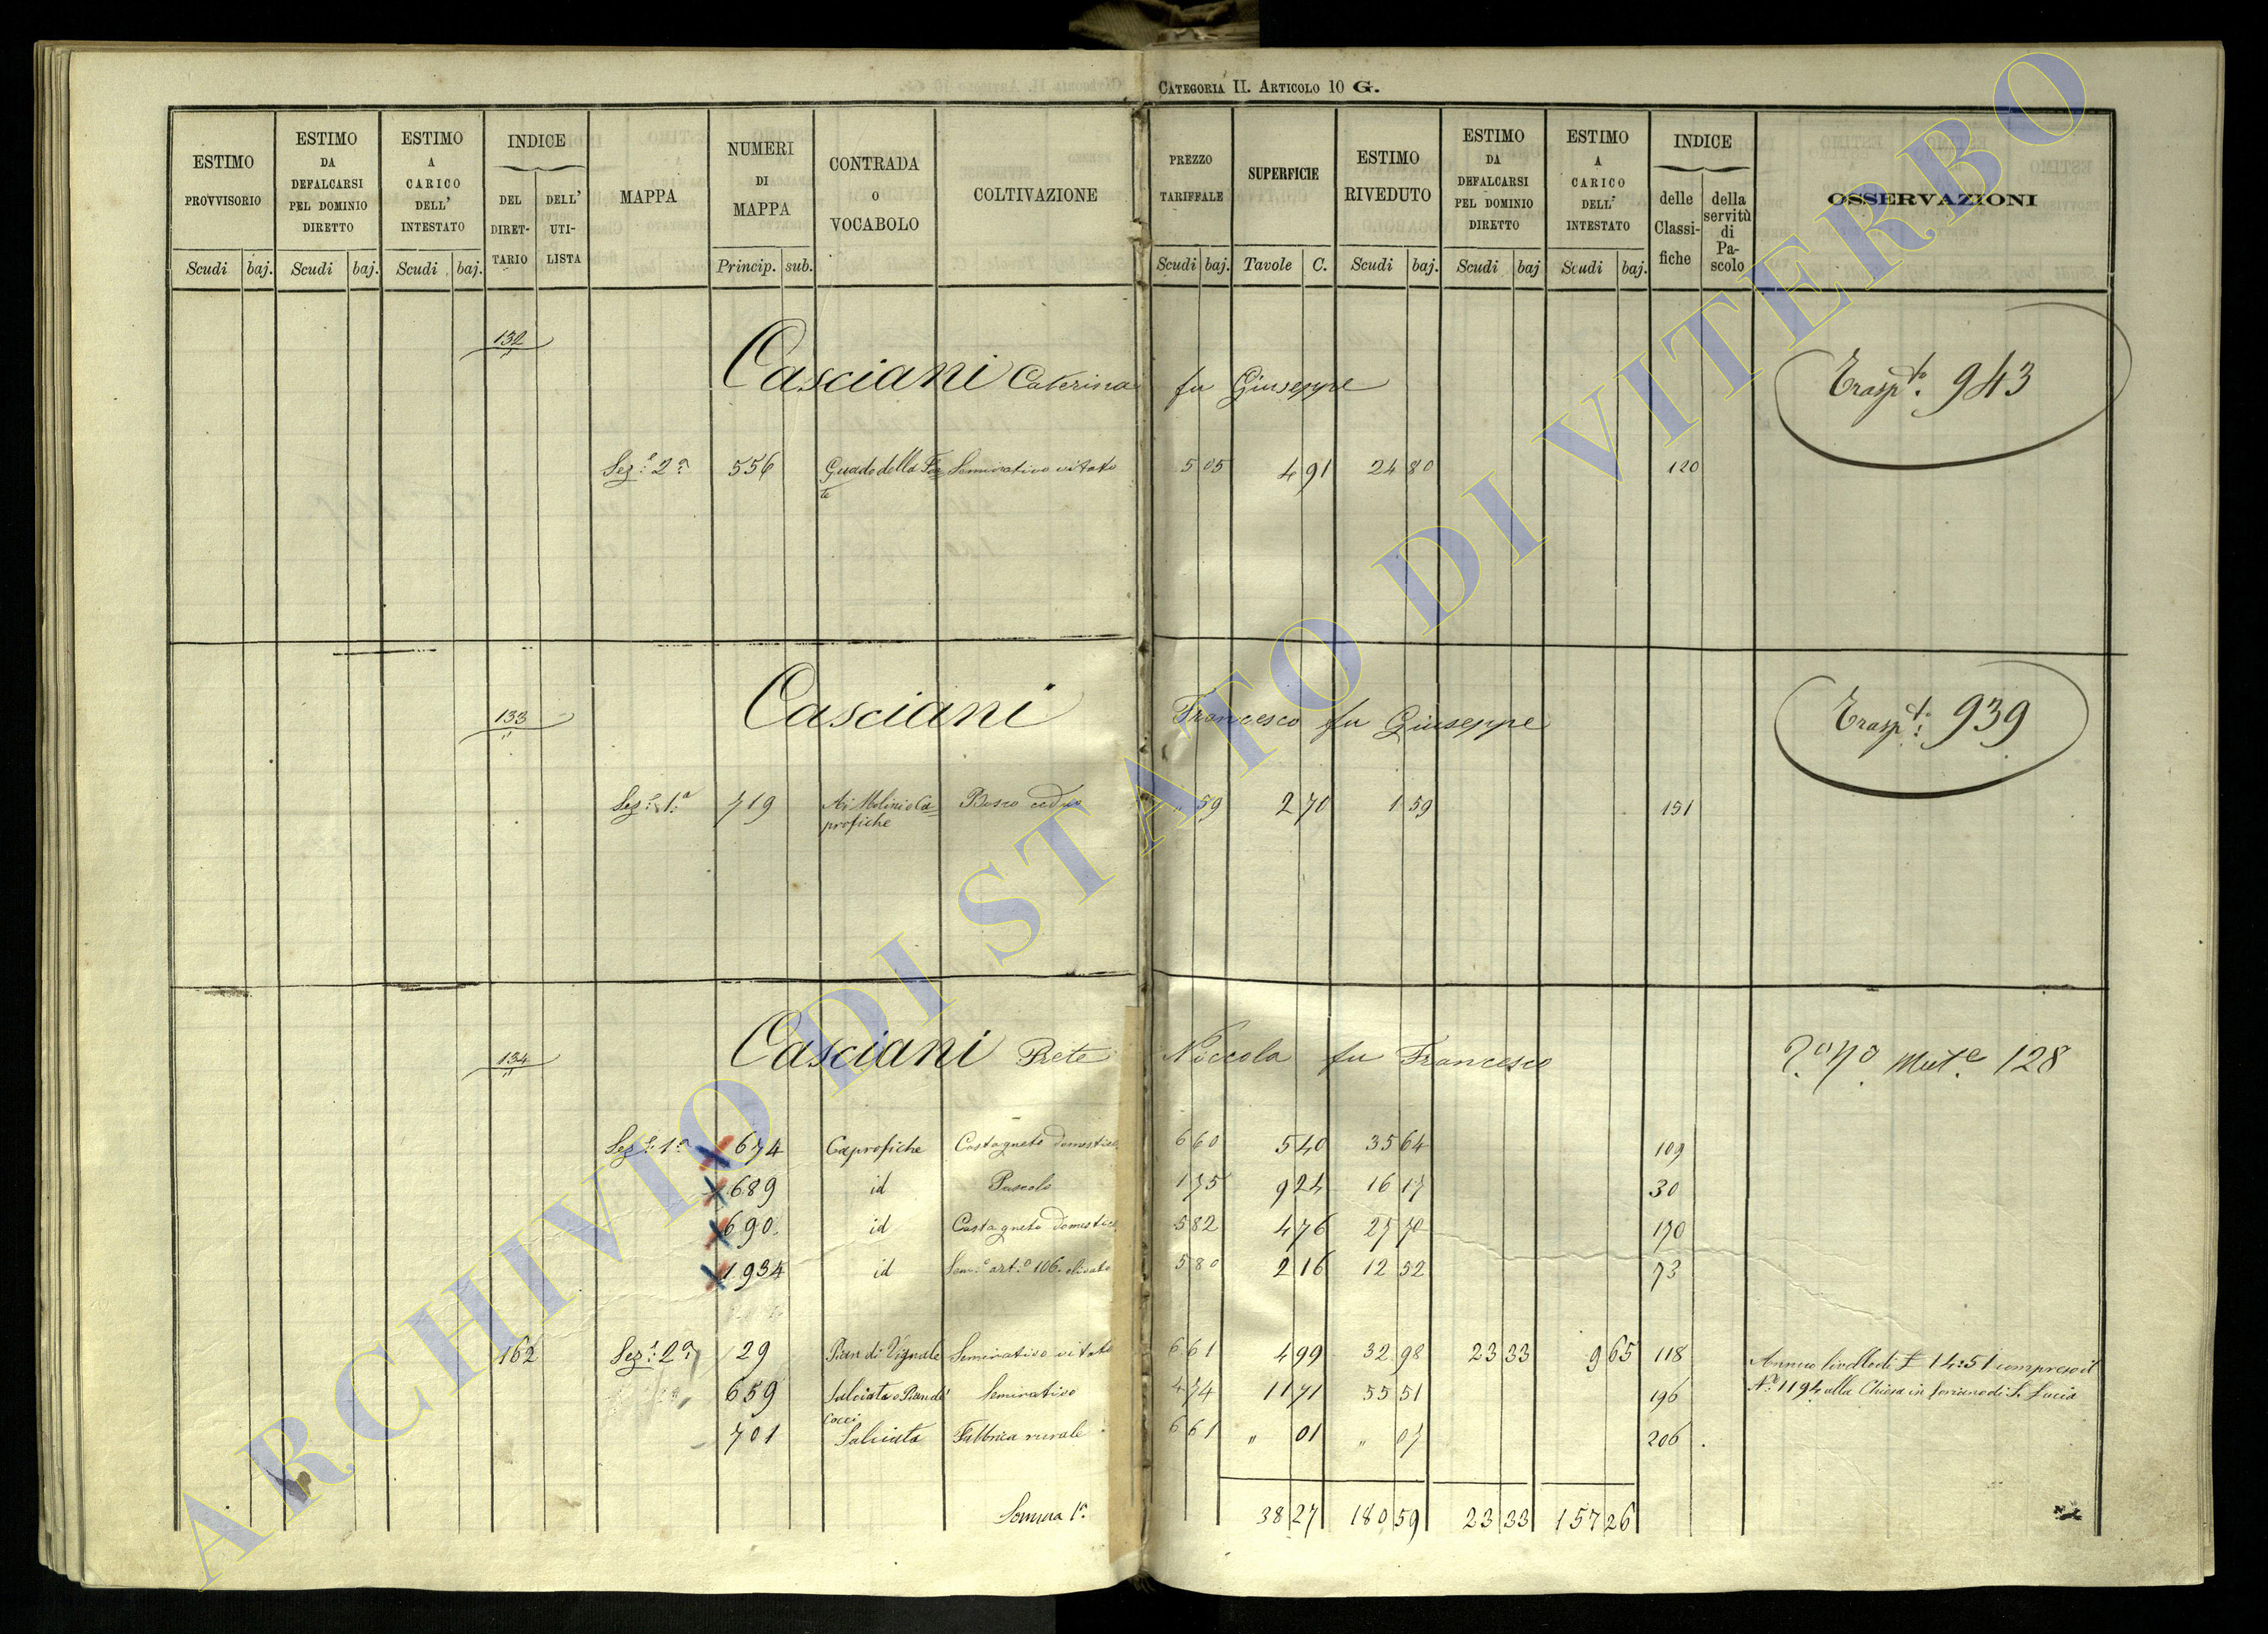 CATEGORIA II. ARTICOLO 10 G.
ESTIMO PROVVISORIO
ESTIMO DA DEFALCARSI PEL DOMINIO DIRETTO
ESTIMO A CARICO DELL' INTESTATO
INDICE
DEL DIRETTARIO
DELL' UTILISTA
MAPPA
NUMERI DI MAPPA
CONTRADA O VOCABOLO
COLTIVAZIONE
PREZZO TARIFFALE
SUPERFICIE
ESTIMO RIVEDUTO
ESTIMO DA DEFALCARSI PEL DOMINIO DIRETTO
ESTIMO A CARICO DELL' INTESTATO
INDICE
delle Classifiche
della servitù di Pascolo
OSSERVAZIONI
Scudi baj. Scudi baj. Scudi baj. Princip. sub. Scudi baj. Tavole C. Scudi baj. Scudi baj Scudi baj.
132 Casciani Caterina fu Giuseppe Trasp.to 943
Sez.e 2a 556 Guado della Fonte Seminativo vitato 5 05 4 91 24 80 120
133 Casciani Francesco fu Giuseppe Trasp.to 939
Sez.e 1.a 719 Ai Molini o Caprofiche Bosco ceduo " 59 2 70 1 59 151
134 Casciani Prete Niccola fu Francesco Mut.e 128
Sez.e 1.a 674 Caprofiche Castagneto domestico 6 60 5 40 35 64 109
689 id Pascolo 1 75 9 24 16 17 30
690 id Castagneto domestico 5 82 4 76 27 70 170
1934 id Sem.o art.o 106 olivato 5 80 2 16 12 52 73
162 Sez.e 2a 29 Pian di Vignale Seminativo vitato 6 61 4 99 32 98 23 33 9 65 118 Annuo livello di £ 14:51 compreso il
659 Salciata o Pian de' Cocci Seminativo 4 74 11 71 55 51 196 N.o 1194 alla Chiesa in Soriano di S. Lucia
701 Salciata Fabbrica rurale 6 61 " 01 " 07 206
Somma 1a 38 27 180 59 23 33 157 26
ARCHIVIO DI STATO DI VITERBO